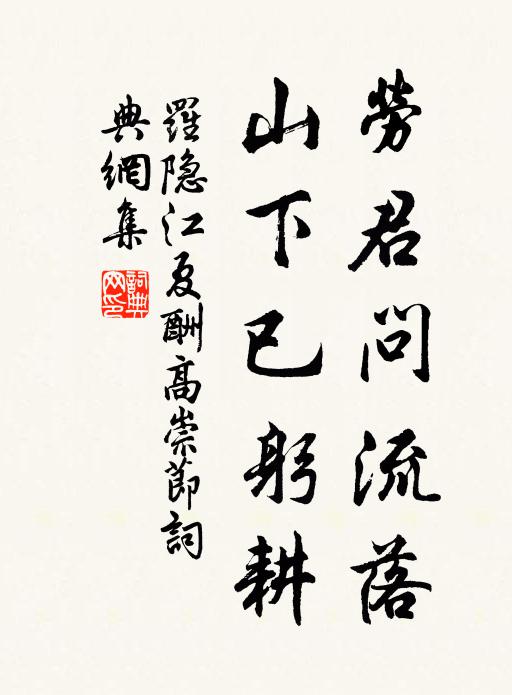 勞君問流落
山下已躬耕
羅隐江夏酬高崇節詞
典網集
詞典网印